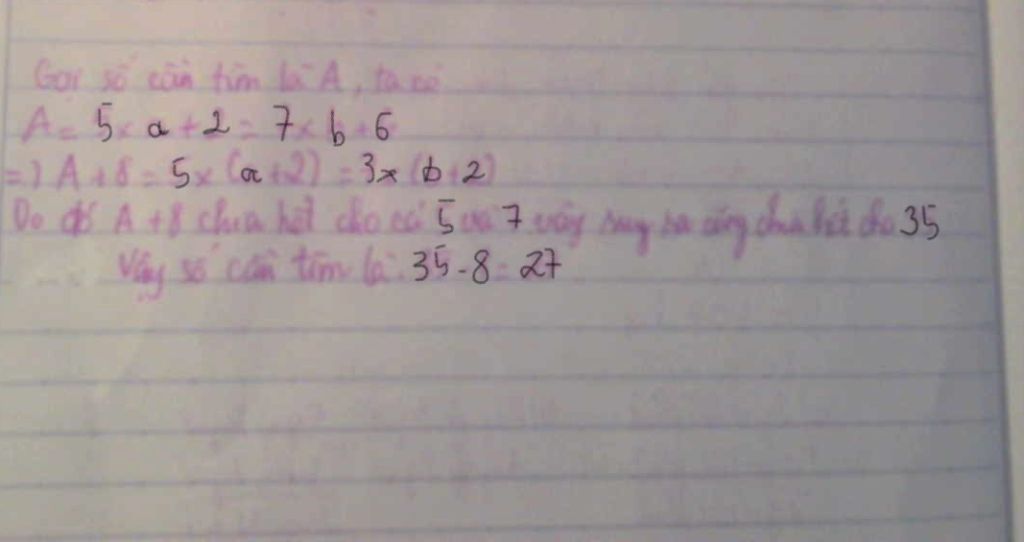 Gọi số cần tìm là A, ta có
A = 5 x a + 2 = 7 x b + 6
=) A + 8 = 5 x (a + 2) = 3 x (b + 2)
Do đó A + 8 chia hết cho cả 5 và 7 vậy suy ra cũng chia hết cho 35
Vậy số cần tìm là: 35 - 8 = 27